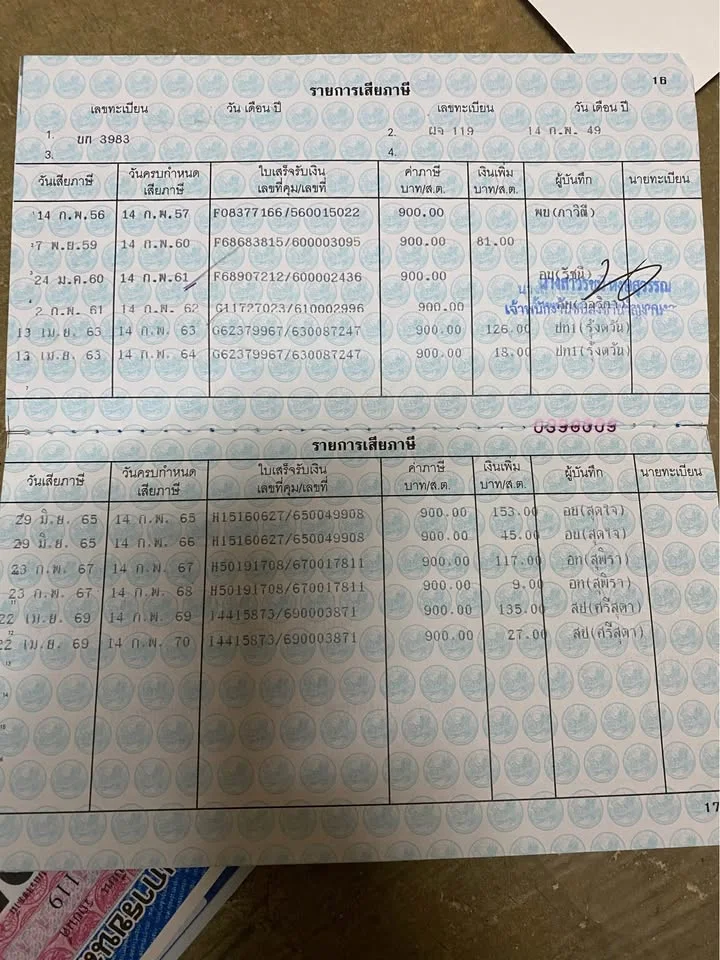 16
รายการเสียภาษี
เลขทะเบียน วัน เดือน ปี เลขทะเบียน วัน เดือน ปี
1. บก 3983 2. ผจ 119 14 ก.พ. 49
3. 4.
วันเสียภาษี วันครบกำหนดเสียภาษี ใบเสร็จรับเงิน เลขที่คุม/เลขที่ ค่าภาษี บาท/ส.ต. เงินเพิ่ม บาท/ส.ต. ผู้บันทึก นายทะเบียน
14 ก.พ.56 14 ก.พ.57 F08377166/560015022 900.00 พย(ภาวิณี)
17 พ.ย.59 14 ก.พ.60 F68683815/600003095 900.00 81.00
24 ม.ค.60 14 ก.พ.61 F68907212/600002436 900.00 อย(รัชนี)
2 ก.พ. 61 14 ก.พ. 62 G11727023/610002996 900.00
13 เม.ย. 63 14 ก.พ. 63 G62379967/630087247 900.00 126.00 ปท1(รุ้งตวัน)
13 เม.ย. 63 14 ก.พ. 64 G62379967/630087247 900.00 18.00 ปท1(รุ้งตวัน)
7
0396009
รายการเสียภาษี
วันเสียภาษี วันครบกำหนดเสียภาษี ใบเสร็จรับเงิน เลขที่คุม/เลขที่ ค่าภาษี บาท/ส.ต. เงินเพิ่ม บาท/ส.ต. ผู้บันทึก นายทะเบียน
29 มิ.ย. 65 14 ก.พ. 65 H15160627/650049908 900.00 153.00 อย(สุดใจ)
29 มิ.ย. 65 14 ก.พ. 66 H15160627/650049908 900.00 45.00 อย(สุดใจ)
23 ก.พ. 67 14 ก.พ. 67 H50191708/670017811 900.00 117.00 อท(สุพิรา)
23 ก.พ. 67 14 ก.พ. 68 H50191708/670017811 900.00 9.00 อท(สุพิรา)
22 เม.ย. 69 14 ก.พ. 69 14415873/690003871 900.00 135.00 สป(ศรีสุดา)
22 เม.ย. 69 14 ก.พ. 70 14415873/690003871 900.00 27.00 สป(ศรีสุดา)
13
14
15
17
119